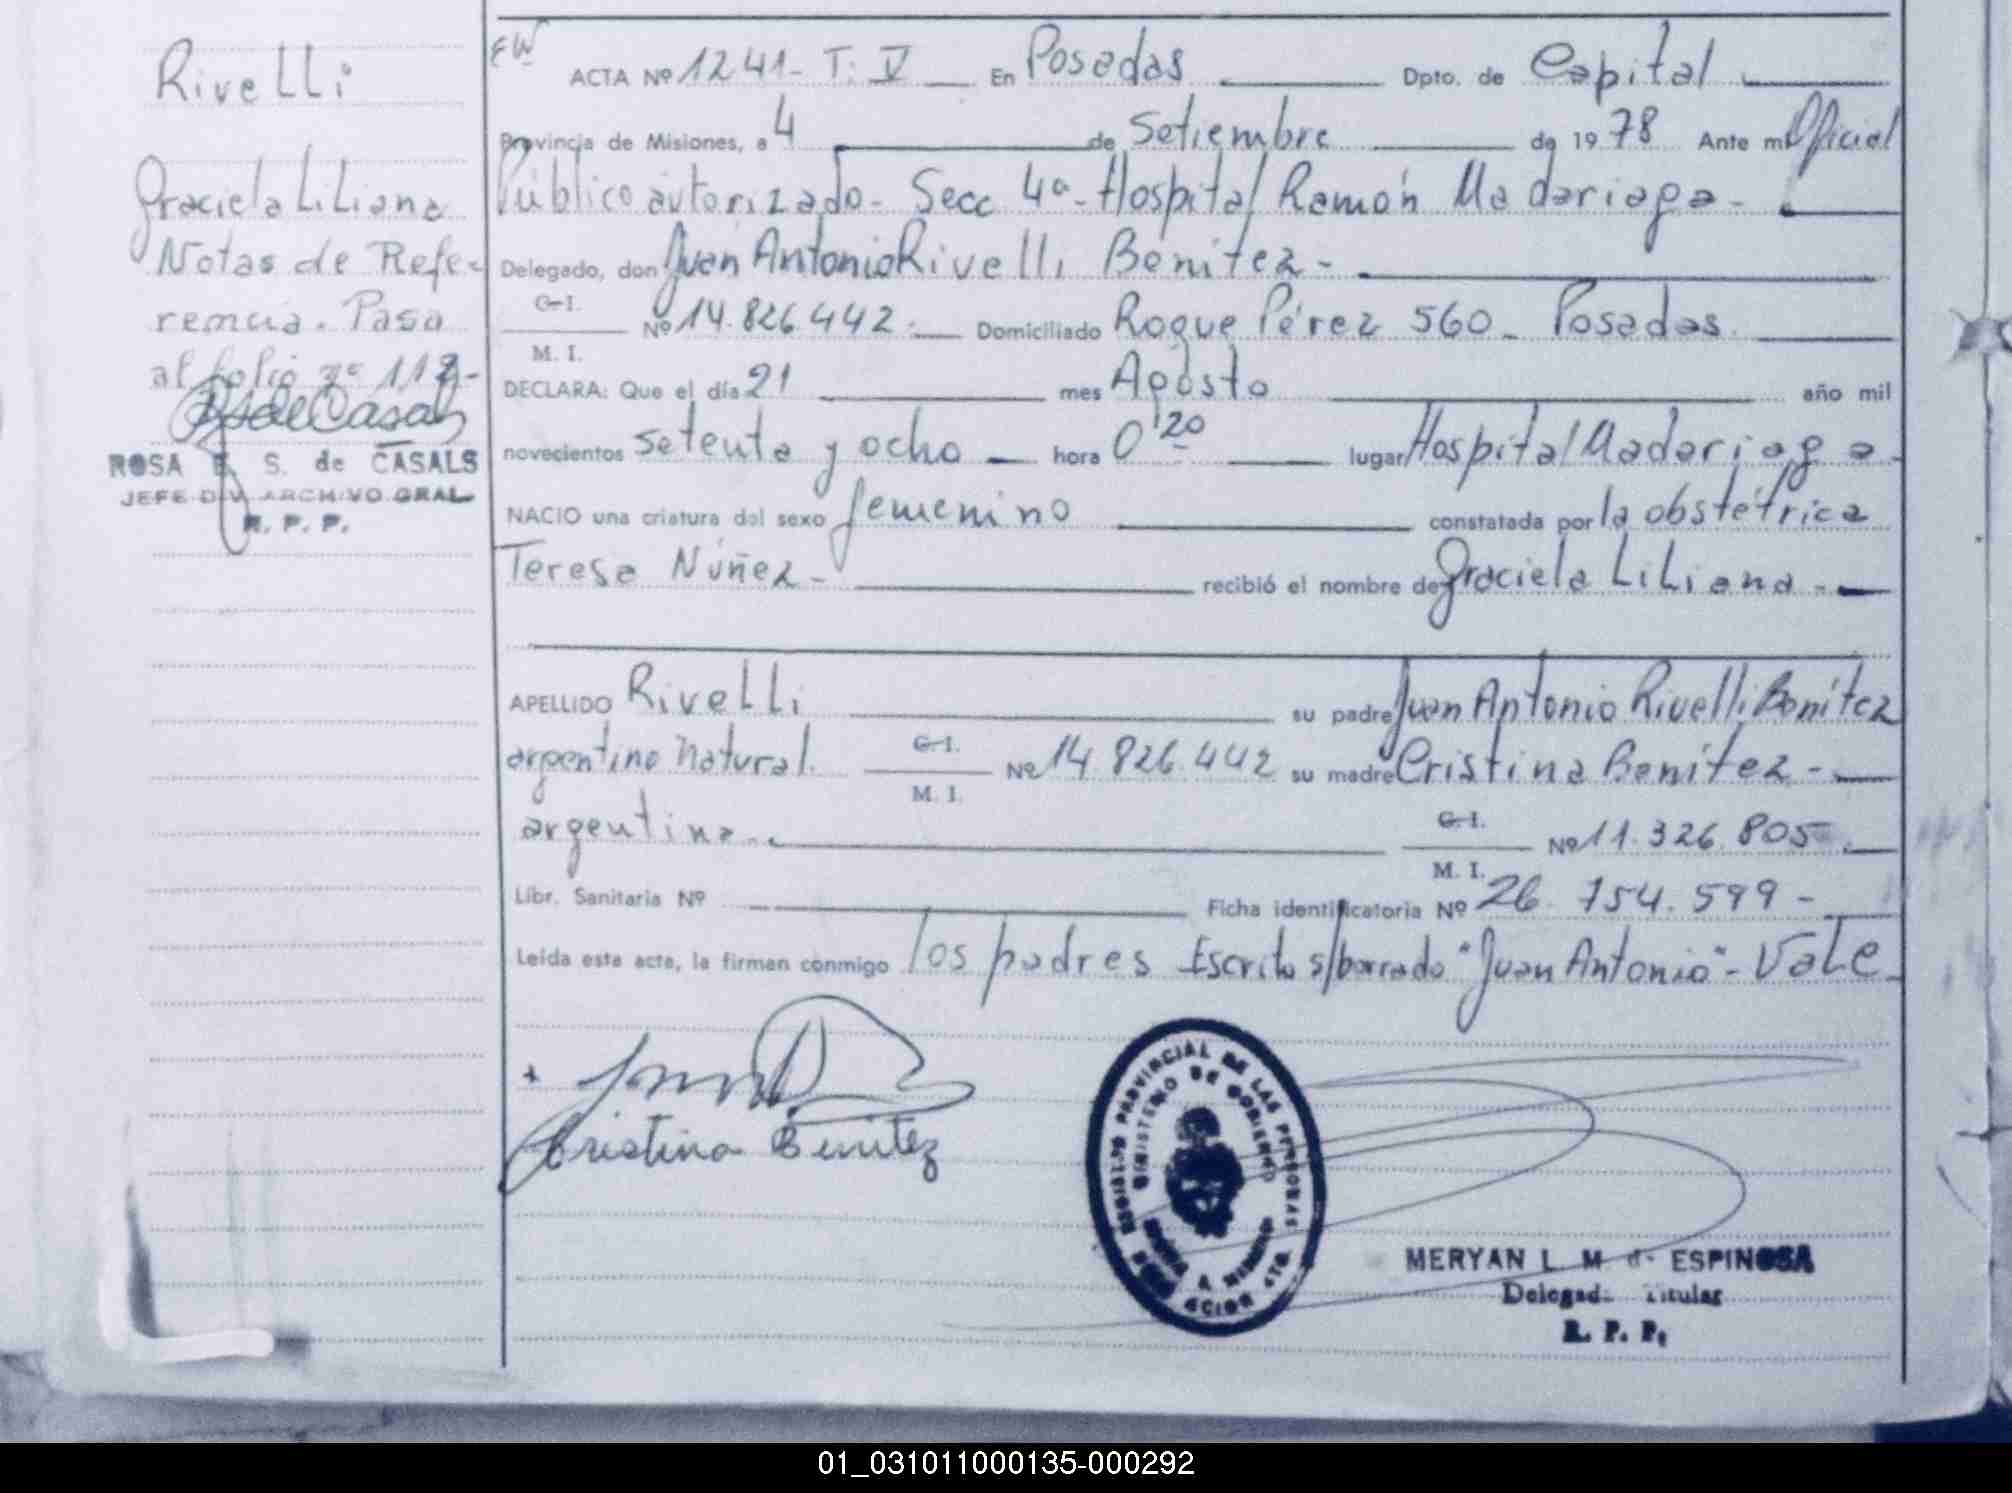 Rivelli
Graciela Liliana
Notas de Refe-
rencia. Pasa
al folio nº 112-
ROSA E. S. de CASALS
JEFE DIV. ARCHIVO GRAL
R. P. P.
ACTA Nº 1241- T: V En Posadas Dpto. de Capital
Provincia de Misiones, a 4 de Setiembre de 1978 Ante mi Oficial
Público autorizado- Secc 4ª- Hospital Ramón Madariaga-
Delegado, don Juan Antonio Rivelli Benitez-
C. I.
Nº 14.826.442.- Domiciliado Roque Pérez 560- Posadas.
M. I.
DECLARA: Que el día 21 mes Agosto año mil
novecientos setenta y ocho hora 0'20 lugar Hospital Madariaga-
NACIO una criatura del sexo femenino constatada por la obstétrica
Teresa Núñez- recibió el nombre de Graciela Liliana-
APELLIDO Rivelli su padre Juan Antonio Rivelli Benítez
argentino natural. C. I. Nº 14.826.442 su madre Cristina Benítez-
M. I.
argentina. C. I. Nº 11.326.805.
M. I.
Libr. Sanitaria Nº Ficha identificatoria Nº 26.754.599-
Leída esta acta, la firman conmigo los padres Escrito s/borrado "Juan Antonio"- Vale-
Cristina Benitez
REGISTRO PROVINCIAL DE LAS PERSONAS
MINISTERIO DE GOBIERNO
MERYAN L. M. de ESPINOSA
Delegada Titular
R. P. P.
01_031011000135-000292